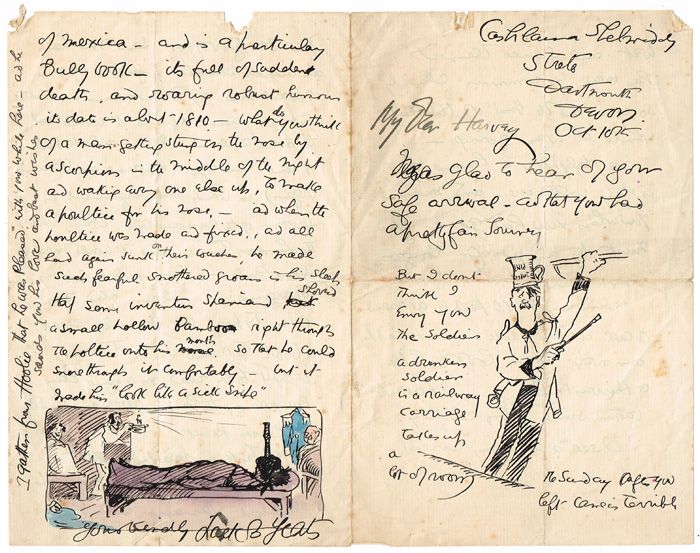 Cashlauna Shelmiddy
Strete
Dartmouth
Devon
Oct 10th
My Dear Harvey
glad to hear of your
safe arrival - and that you had
a pretty fair Journey
But I don't
Think I
Envy you
The Soldiers
a drunken
Soldier
in a railway
carriage
Takes up
a
lot of room
The Sunday after you
left came in Terrible
of Mexico - and is a particularly
Bully book - its full of sudden
death, and roaring robust humour
its date is about 1810 - what do you think
of a man getting stung on the nose by
a scorpion in the middle of the night
and waking every one else up, to make
a poultice for his nose, - and when the
poultice was made and fixed, and all
had again sunk on their couches, he made
such fearful smothered groans in his sleep
that some inventive Spaniard shoved
a small hollow bamboo right through
the poltice onto his mouth so that he could
snore through it comfortably - but it
made him "look like a sick snipe"
yours kindly Jack B Yeats
I gather from Hoolie that he was "pleased" with you while here - and he
sends you his love and best wishes